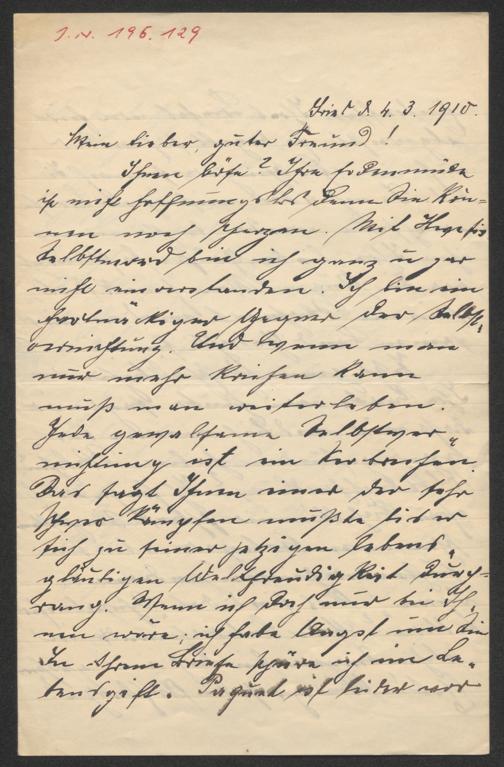 J.N. 196.129
Triest d. 4. 3. 1910.
Mein lieber, guter Freund!
Ihnen böse? Ihre Erdenmüde
ist nicht hoffnungslos denn Sie kön-
nen noch scherzen. Mit
Selbstmord bin ich ganz u gar
nicht einverstanden. Ich bin ein
hartnäckiger Gegner der Selbst-
vernichtung. Und wenn man
nur mehr kriechen kann
muß man weiterleben.
Jede gewaltsame Selbstver-
nichtung ist ein Verbrechen.
Das sagt Ihnen einer der sehr
schwer kämpfen mußte bis er
sich zu seiner jetzigen lebens-
gläubigen Weltfreudigkeit durch-
rang. Wenn ich doch nur bei Ih-
nen wäre; ich habe Angst um Sie
In Ihrem Briefe spüre ich ein Le-
bensgift. Paquet ist leider vor